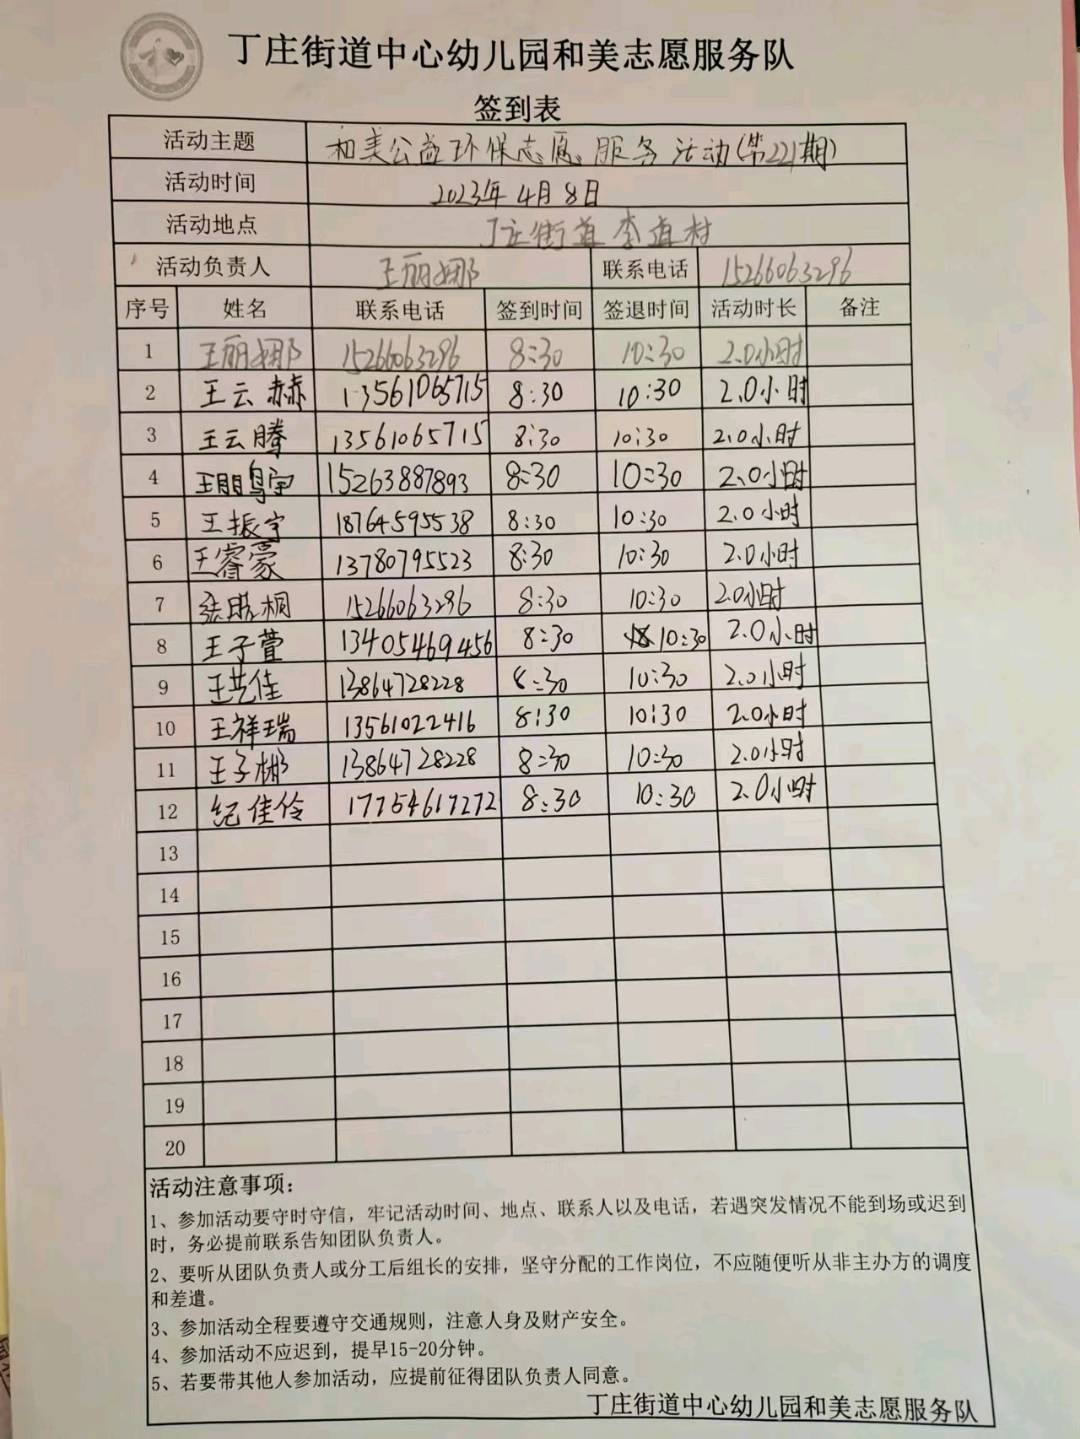 丁庄街道中心幼儿园和美志愿服务队
签到表
活动主题 和美公益环保志愿服务活动(第221期)
活动时间 2023年4月8日
活动地点 丁庄街道李道村
活动负责人 王丽娜 联系电话 15266063296
序号 姓名 联系电话 签到时间 签退时间 活动时长 备注
1 王丽娜 15266063296 8:30 10:30 2.0小时
2 王云赫 13561065715 8:30 10:30 2.0小时
3 王云腾 13561065715 8:30 10:30 2.0小时
4 王鹏宇 15263887893 8:30 10:30 2.0小时
5 王振宇 18764595538 8:30 10:30 2.0小时
6 王睿豪 13780795523 8:30 10:30 2.0小时
7 桐 15266063296 8:30 10:30 2.0小时
8 王子萱 13405469456 8:30 10:30 2.0小时
9 王艺佳 13864728228 8:30 10:30 2.0小时
10 王祥瑞 13561022416 8:30 10:30 2.0小时
11 王子彬 13864728228 8:30 10:30 2.0小时
12 纪佳伶 17754617272 8:30 10:30 2.0小时
13
14
15
16
17
18
19
20
活动注意事项：
1、参加活动要守时守信，牢记活动时间、地点、联系人以及电话，若遇突发情况不能到场或迟到
时，务必提前联系告知团队负责人。
2、要听从团队负责人或分工后组长的安排，坚守分配的工作岗位，不应随便听从非主办方的调度
和差遣。
3、参加活动全程要遵守交通规则，注意人身及财产安全。
4、参加活动不应迟到，提早15-20分钟。
5、若要带其他人参加活动，应提前征得团队负责人同意。
丁庄街道中心幼儿园和美志愿服务队